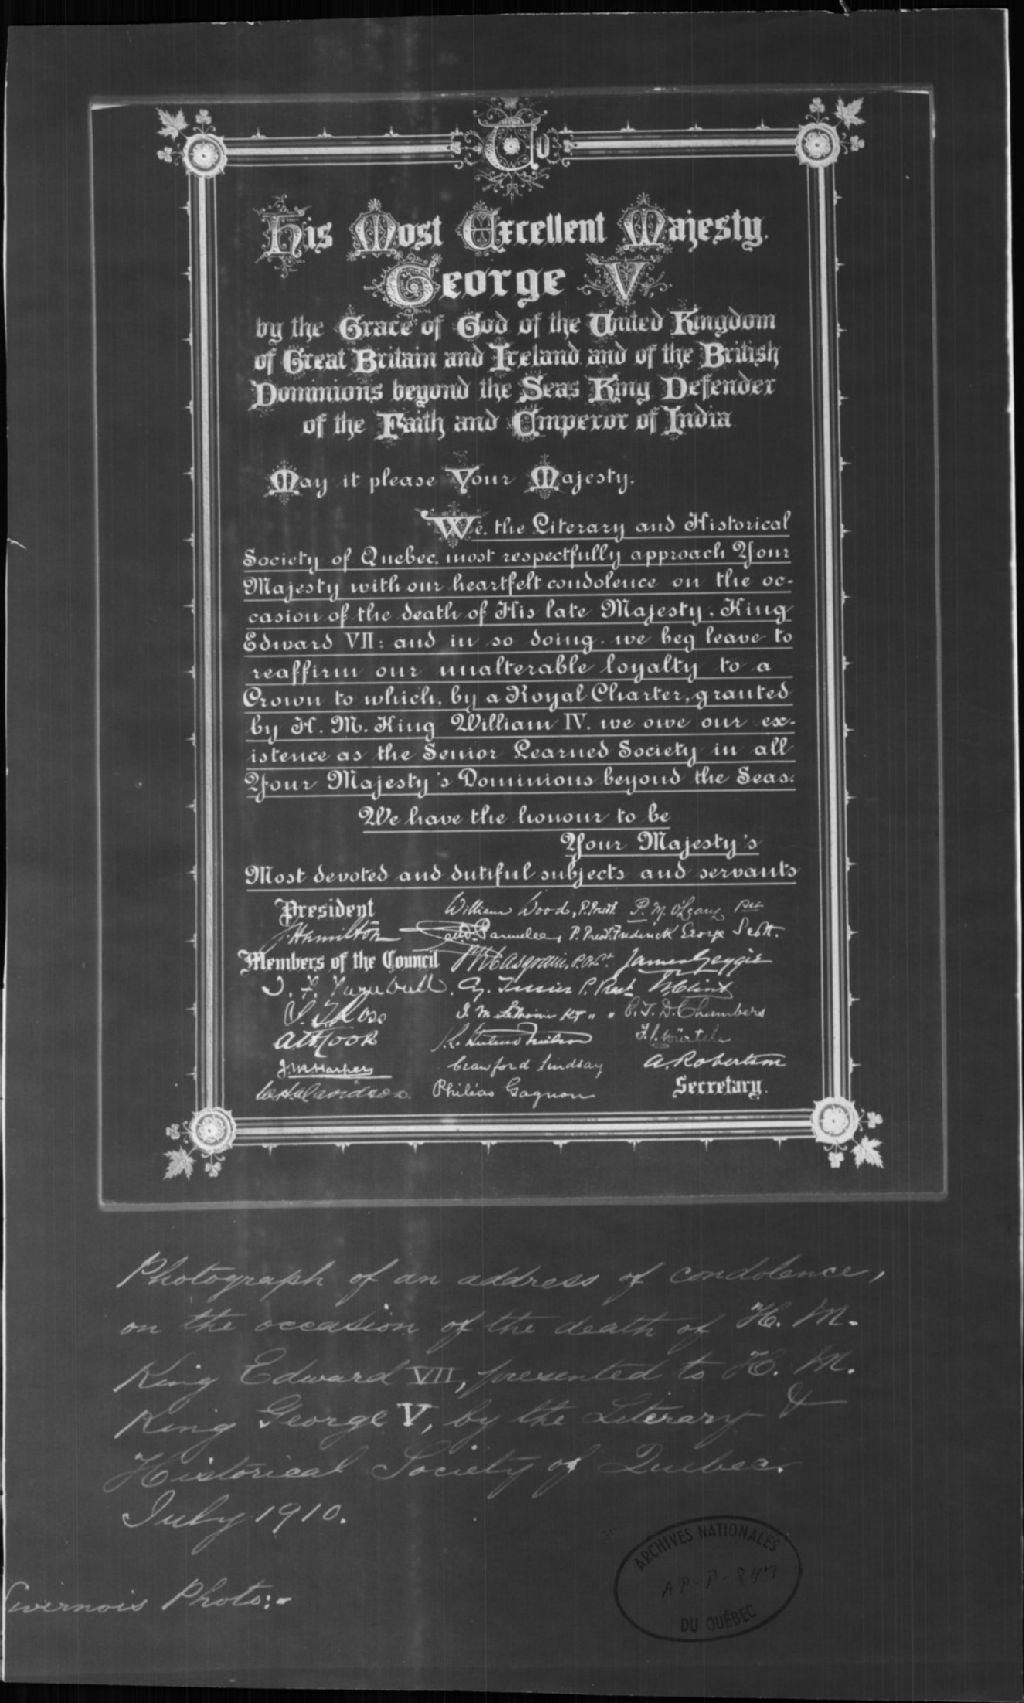 To
His Most Excellent Majesty.
George V
by the Grace of God of the United Kingdom
of Great Britain and Ireland and of the British
Dominions beyond the Seas King Defender
of the Faith and Emperor of India
May it please Your Majesty.
We, the Literary and Historical
Society of Quebec, most respectfully approach Your
Majesty with our heartfelt condolence on the oc-
casion of the death of His late Majesty, King
Edward VII: and in so doing, we beg leave to
reaffirm our unalterable loyalty to a
Crown to which, by a Royal Charter, granted
by H. M. King William IV, we owe our ex-
istence as the Senior Learned Society in all
Your Majesty's Dominions beyond the Seas.
We have the honour to be
Your Majesty's
Most devoted and dutiful subjects and servants
President William Wood,
J Hamilton Frederick George Scott.
Members of the Council James Geggie
T. F. Turnbull.
J. M. LeMoine P. T. D. Chambers
A H Cook
J. M. Harper Crawford Lindsay A. Robertson
Philéas Gagnon Secretary.
Photograph of an address of condolence,
on the occasion of the death of H. M.
King Edward VII, presented to H. M.
King George V, by the Literary &
Historical Society of Quebec.
July 1910.
ivernois Photo:-
ARCHIVES NATIONALES
AP-P-
DU QUÉBEC